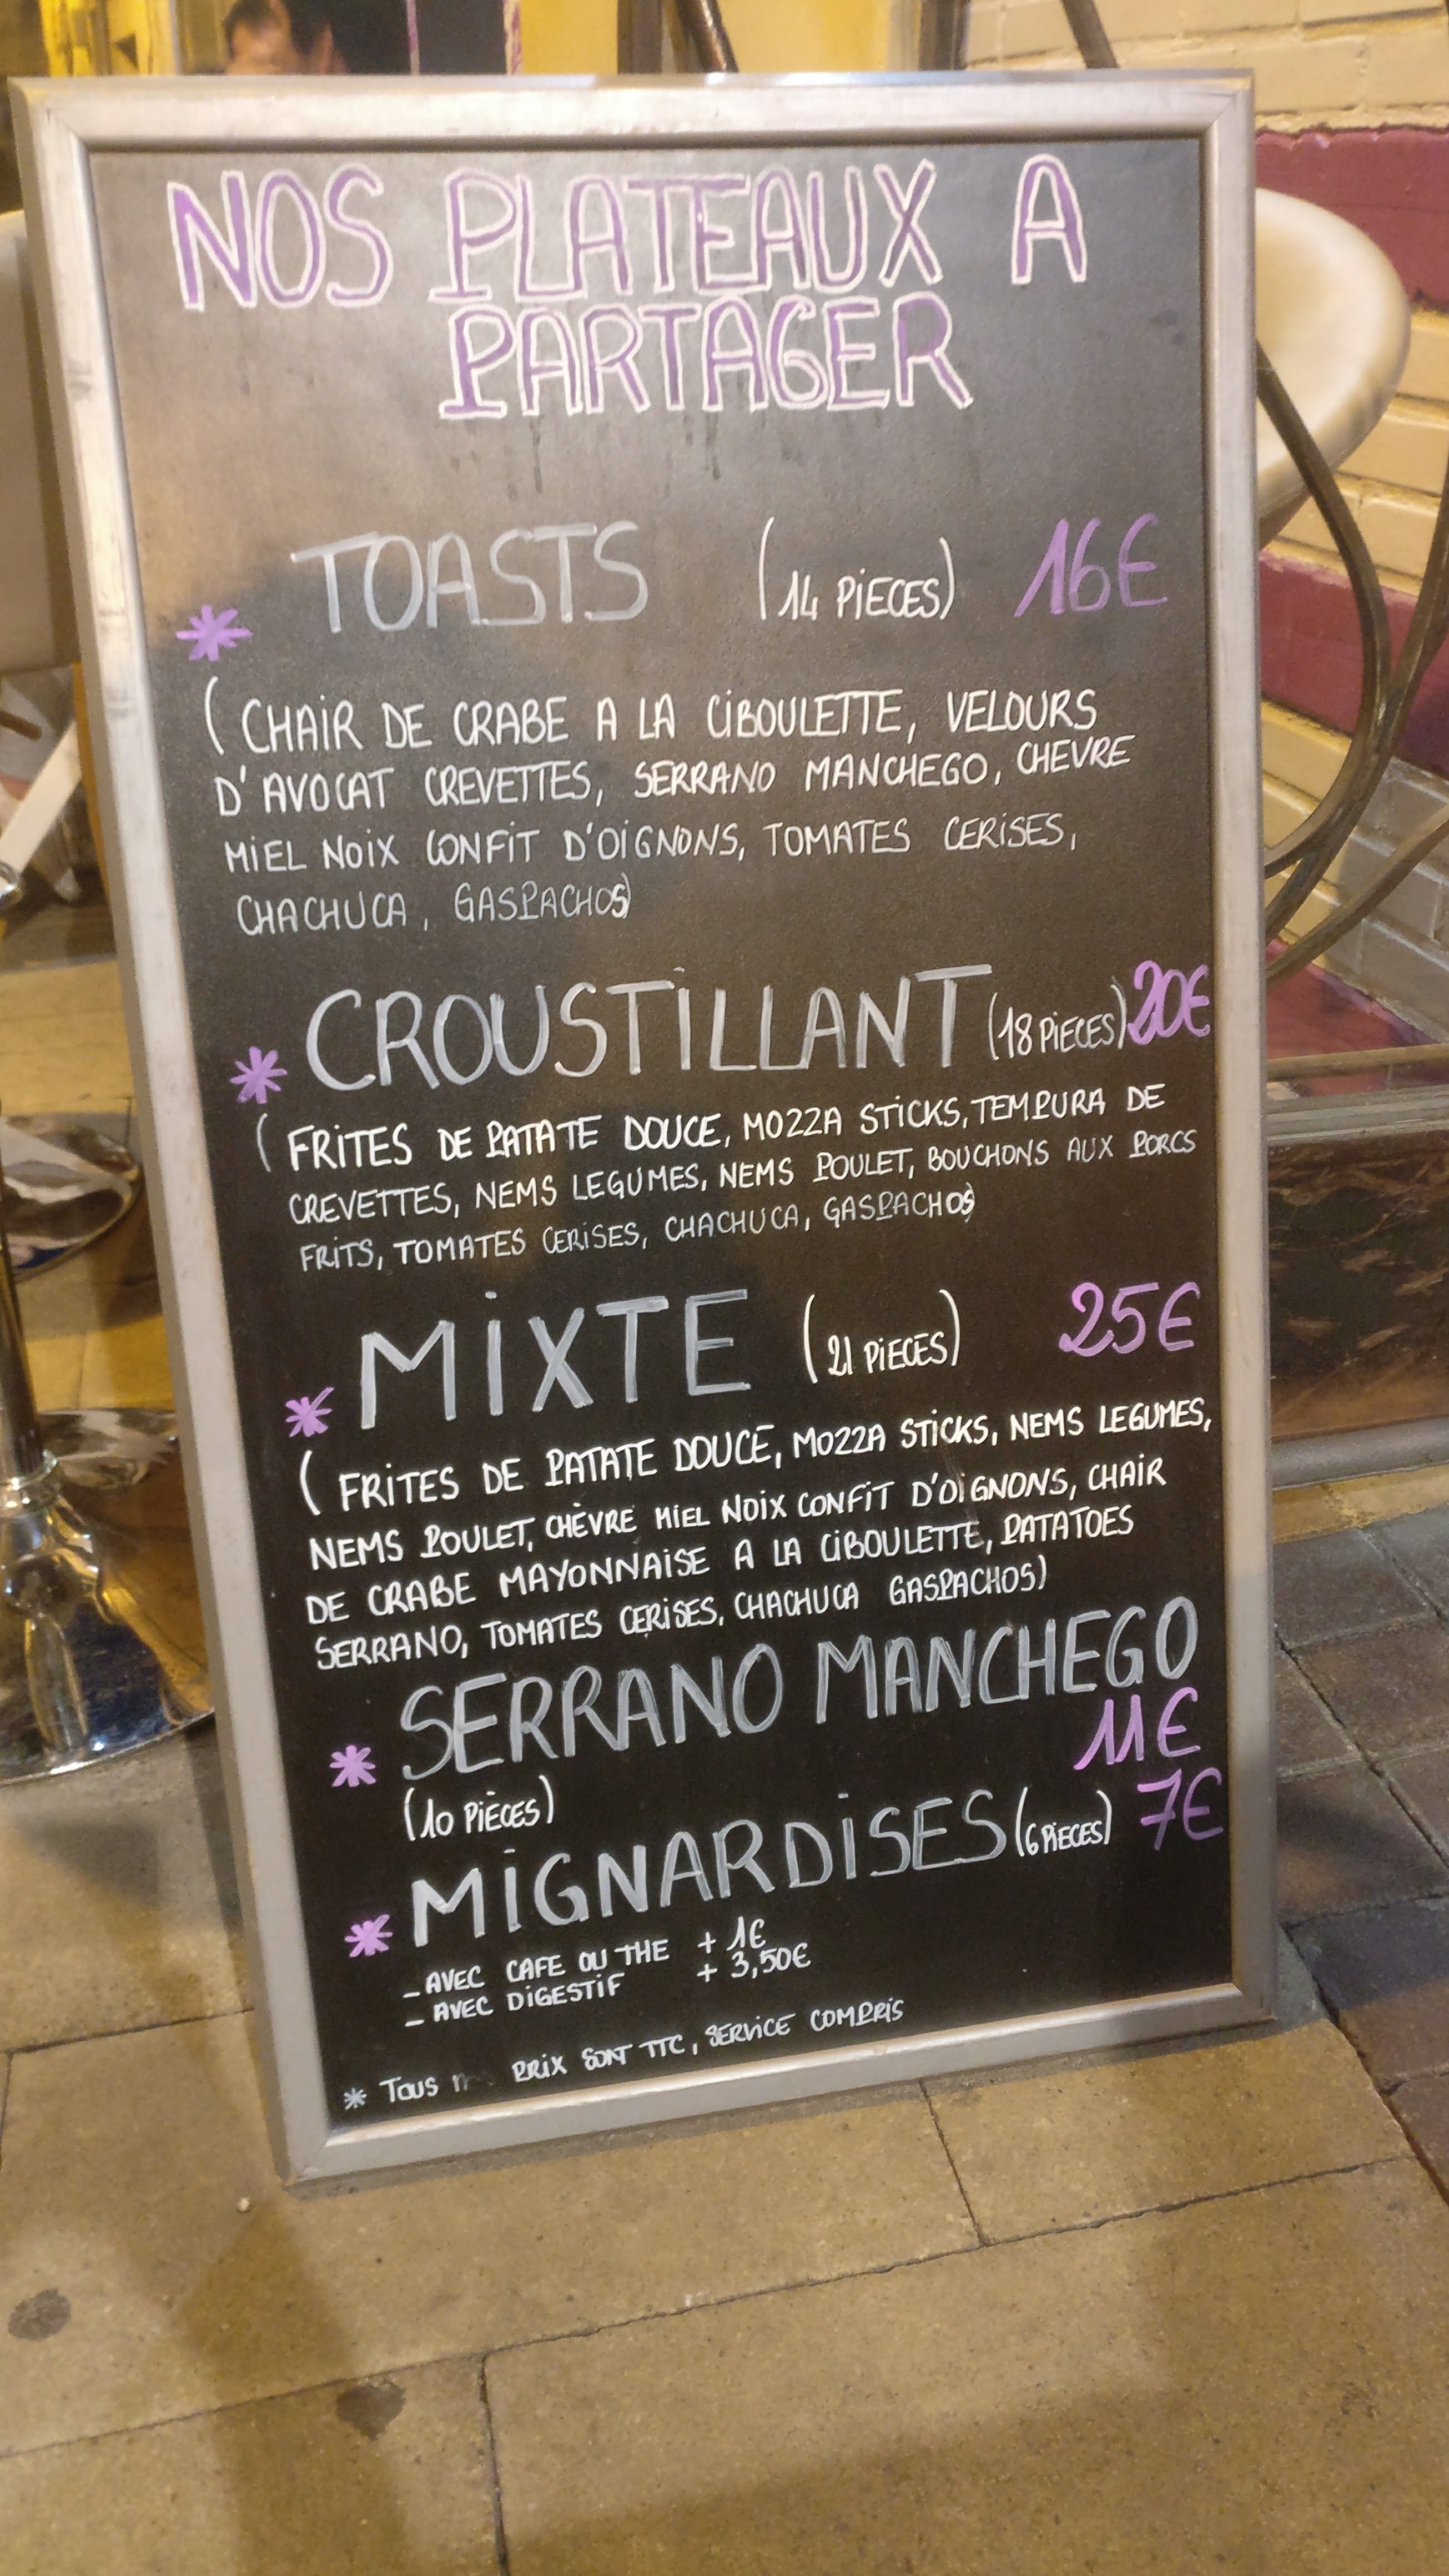 NOS PLATEAUX A
PARTAGER
* TOASTS (14 PIECES) 16€
(CHAIR DE CRABE A LA CIBOULETTE, VELOURS
D'AVOCAT CREVETTES, SERRANO MANCHEGO, CHEVRE
MIEL NOIX CONFIT D'OIGNONS, TOMATES CERISES,
CHACHUCA, GASPACHOS)
* CROUSTILLANT (18 PIECES) 20€
(FRITES DE PATATE DOUCE, MOZZA STICKS, TEMPURA DE
CREVETTES, NEMS LEGUMES, NEMS POULET, BOUCHONS AUX PORCS
FRITS, TOMATES CERISES, CHACHUCA, GASPACHOS)
* MIXTE (21 PIECES) 25€
(FRITES DE PATATE DOUCE, MOZZA STICKS, NEMS LEGUMES,
NEMS POULET, CHÈVRE MIEL NOIX CONFIT D'OIGNONS, CHAIR
DE CRABE MAYONNAISE A LA CIBOULETTE, PATATOES
SERRANO, TOMATES CERISES, CHACHUCA GASPACHOS)
* SERRANO MANCHEGO
11€
(10 PIÈCES)
* MIGNARDISES (6 PIECES) 7€
- AVEC CAFE OU THE + 1€
- AVEC DIGESTIF + 3,50€
* TOUS PRIX SONT TTC, SERVICE COMPRIS